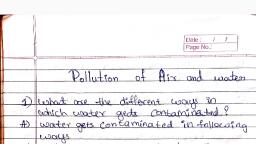 Date : / /
Page No.:
Pollution of Air and water
1) what are the different ways in
which water gets contaminated?
A) water gets contaminated in following
ways